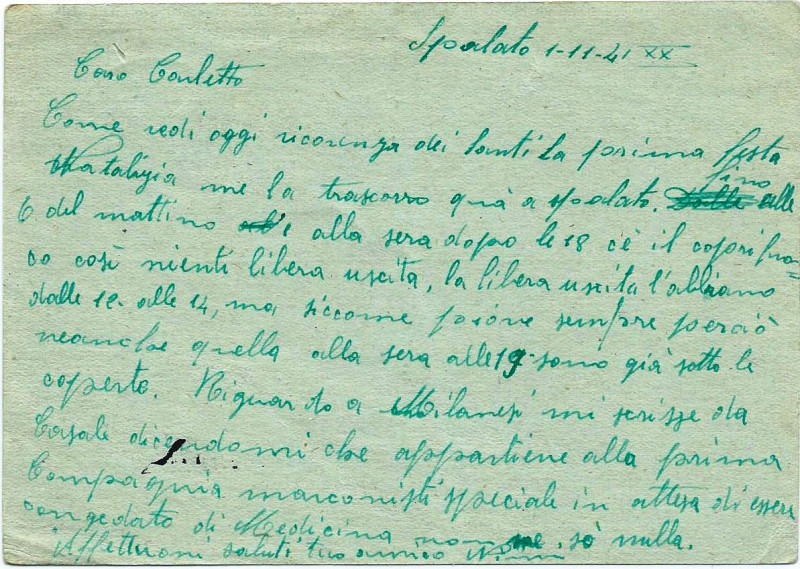 Spalato 1-11-41 XX
Caro Carletto
Come vedi oggi ricorenza dei Santi la prima festa
Natalizia me la trascorro quà a spalato. fino alle
6 del mattino e alla sera dopo le 18 c'è il coprifuo=
co così nienti libera uscita, la libera uscita l'abbiamo
dalle 12 alle 14, ma siccome piove sempre perciò
neanche quella alla sera alle 19 sono già sotto le
coperte. Riguardo a Milanesi mi scrisse da
Casale dicendomi che appartiene alla prima
Compagnia marconisti speciale in attesa di essere
congedato di Medicina non ne sò nulla.
Affettuosi saluti tuo amico